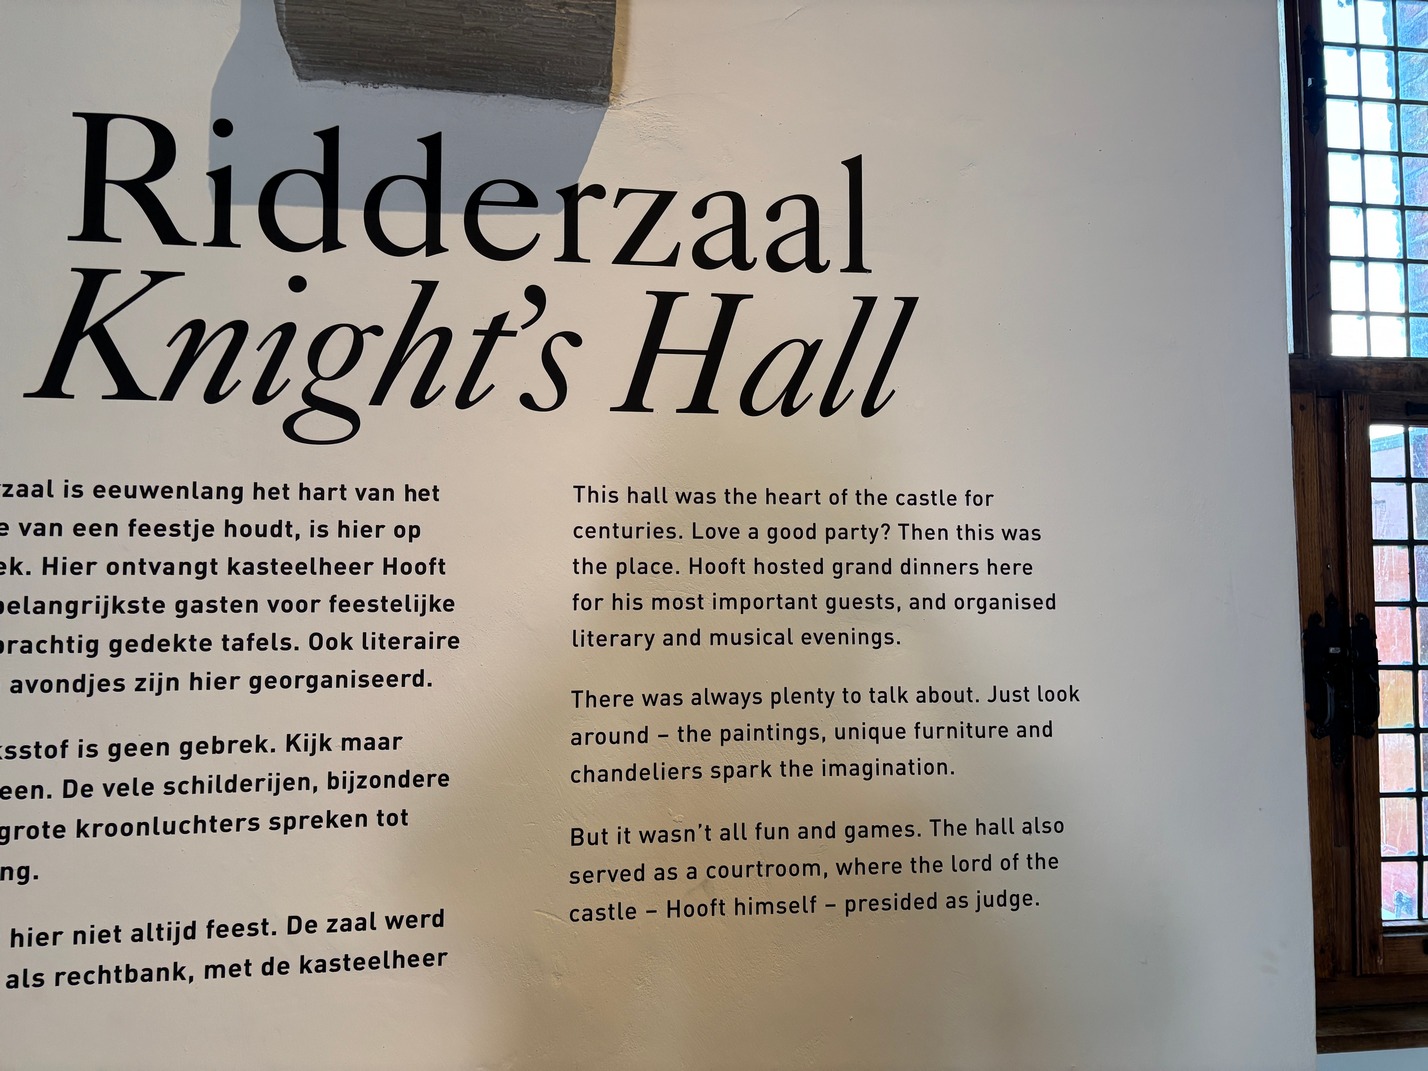 Ridderzaal
Knight’s Hall
is eeuwenlang het hart van het
van een feestje houdt, is hier op
Hier ontvangt kasteelheer Hooft
belangrijkste gasten voor feestelijke
prachtig gedekte tafels. Ook literaire
avondjes zijn hier georganiseerd.
is geen gebrek. Kijk maar
De vele schilderijen, bijzondere
grote kroonluchters spreken tot
hier niet altijd feest. De zaal werd
als rechtbank, met de kasteelheer
This hall was the heart of the castle for
centuries. Love a good party? Then this was
the place. Hooft hosted grand dinners here
for his most important guests, and organised
literary and musical evenings.
There was always plenty to talk about. Just look
around – the paintings, unique furniture and
chandeliers spark the imagination.
But it wasn’t all fun and games. The hall also
served as a courtroom, where the lord of the
castle – Hooft himself – presided as judge.